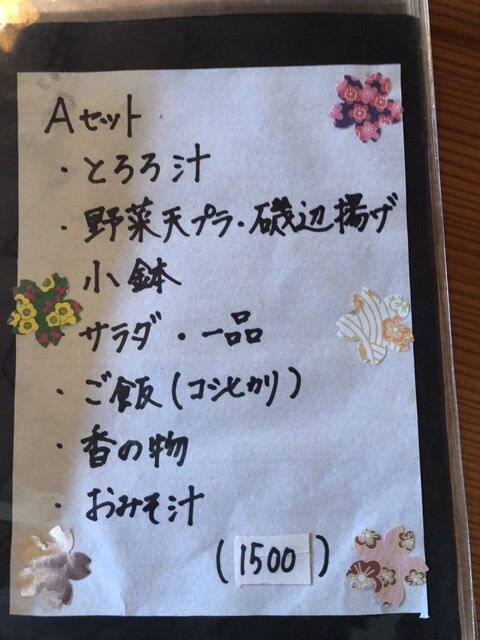 Aセット
・とろろ汁
・野菜天プラ・磯辺揚げ
小鉢
サラダ・一品
・ご飯(コシヒカリ)
・香の物
・おみそ汁
(1500)